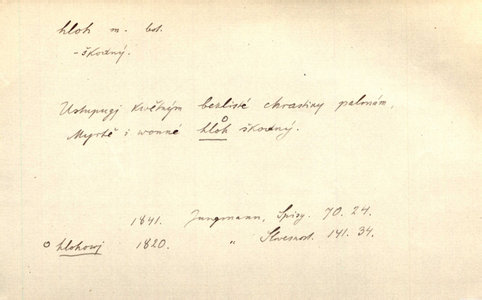 hloh m. bot.
- škodný.
Ustupugj květným bezlisté chrastiny palmám,
Myrtě i wonné hloh škodný.
1841. Jungmann, Spisy. 70. 24.
hlohowj 1820. " Slovesnost. 141. 34.